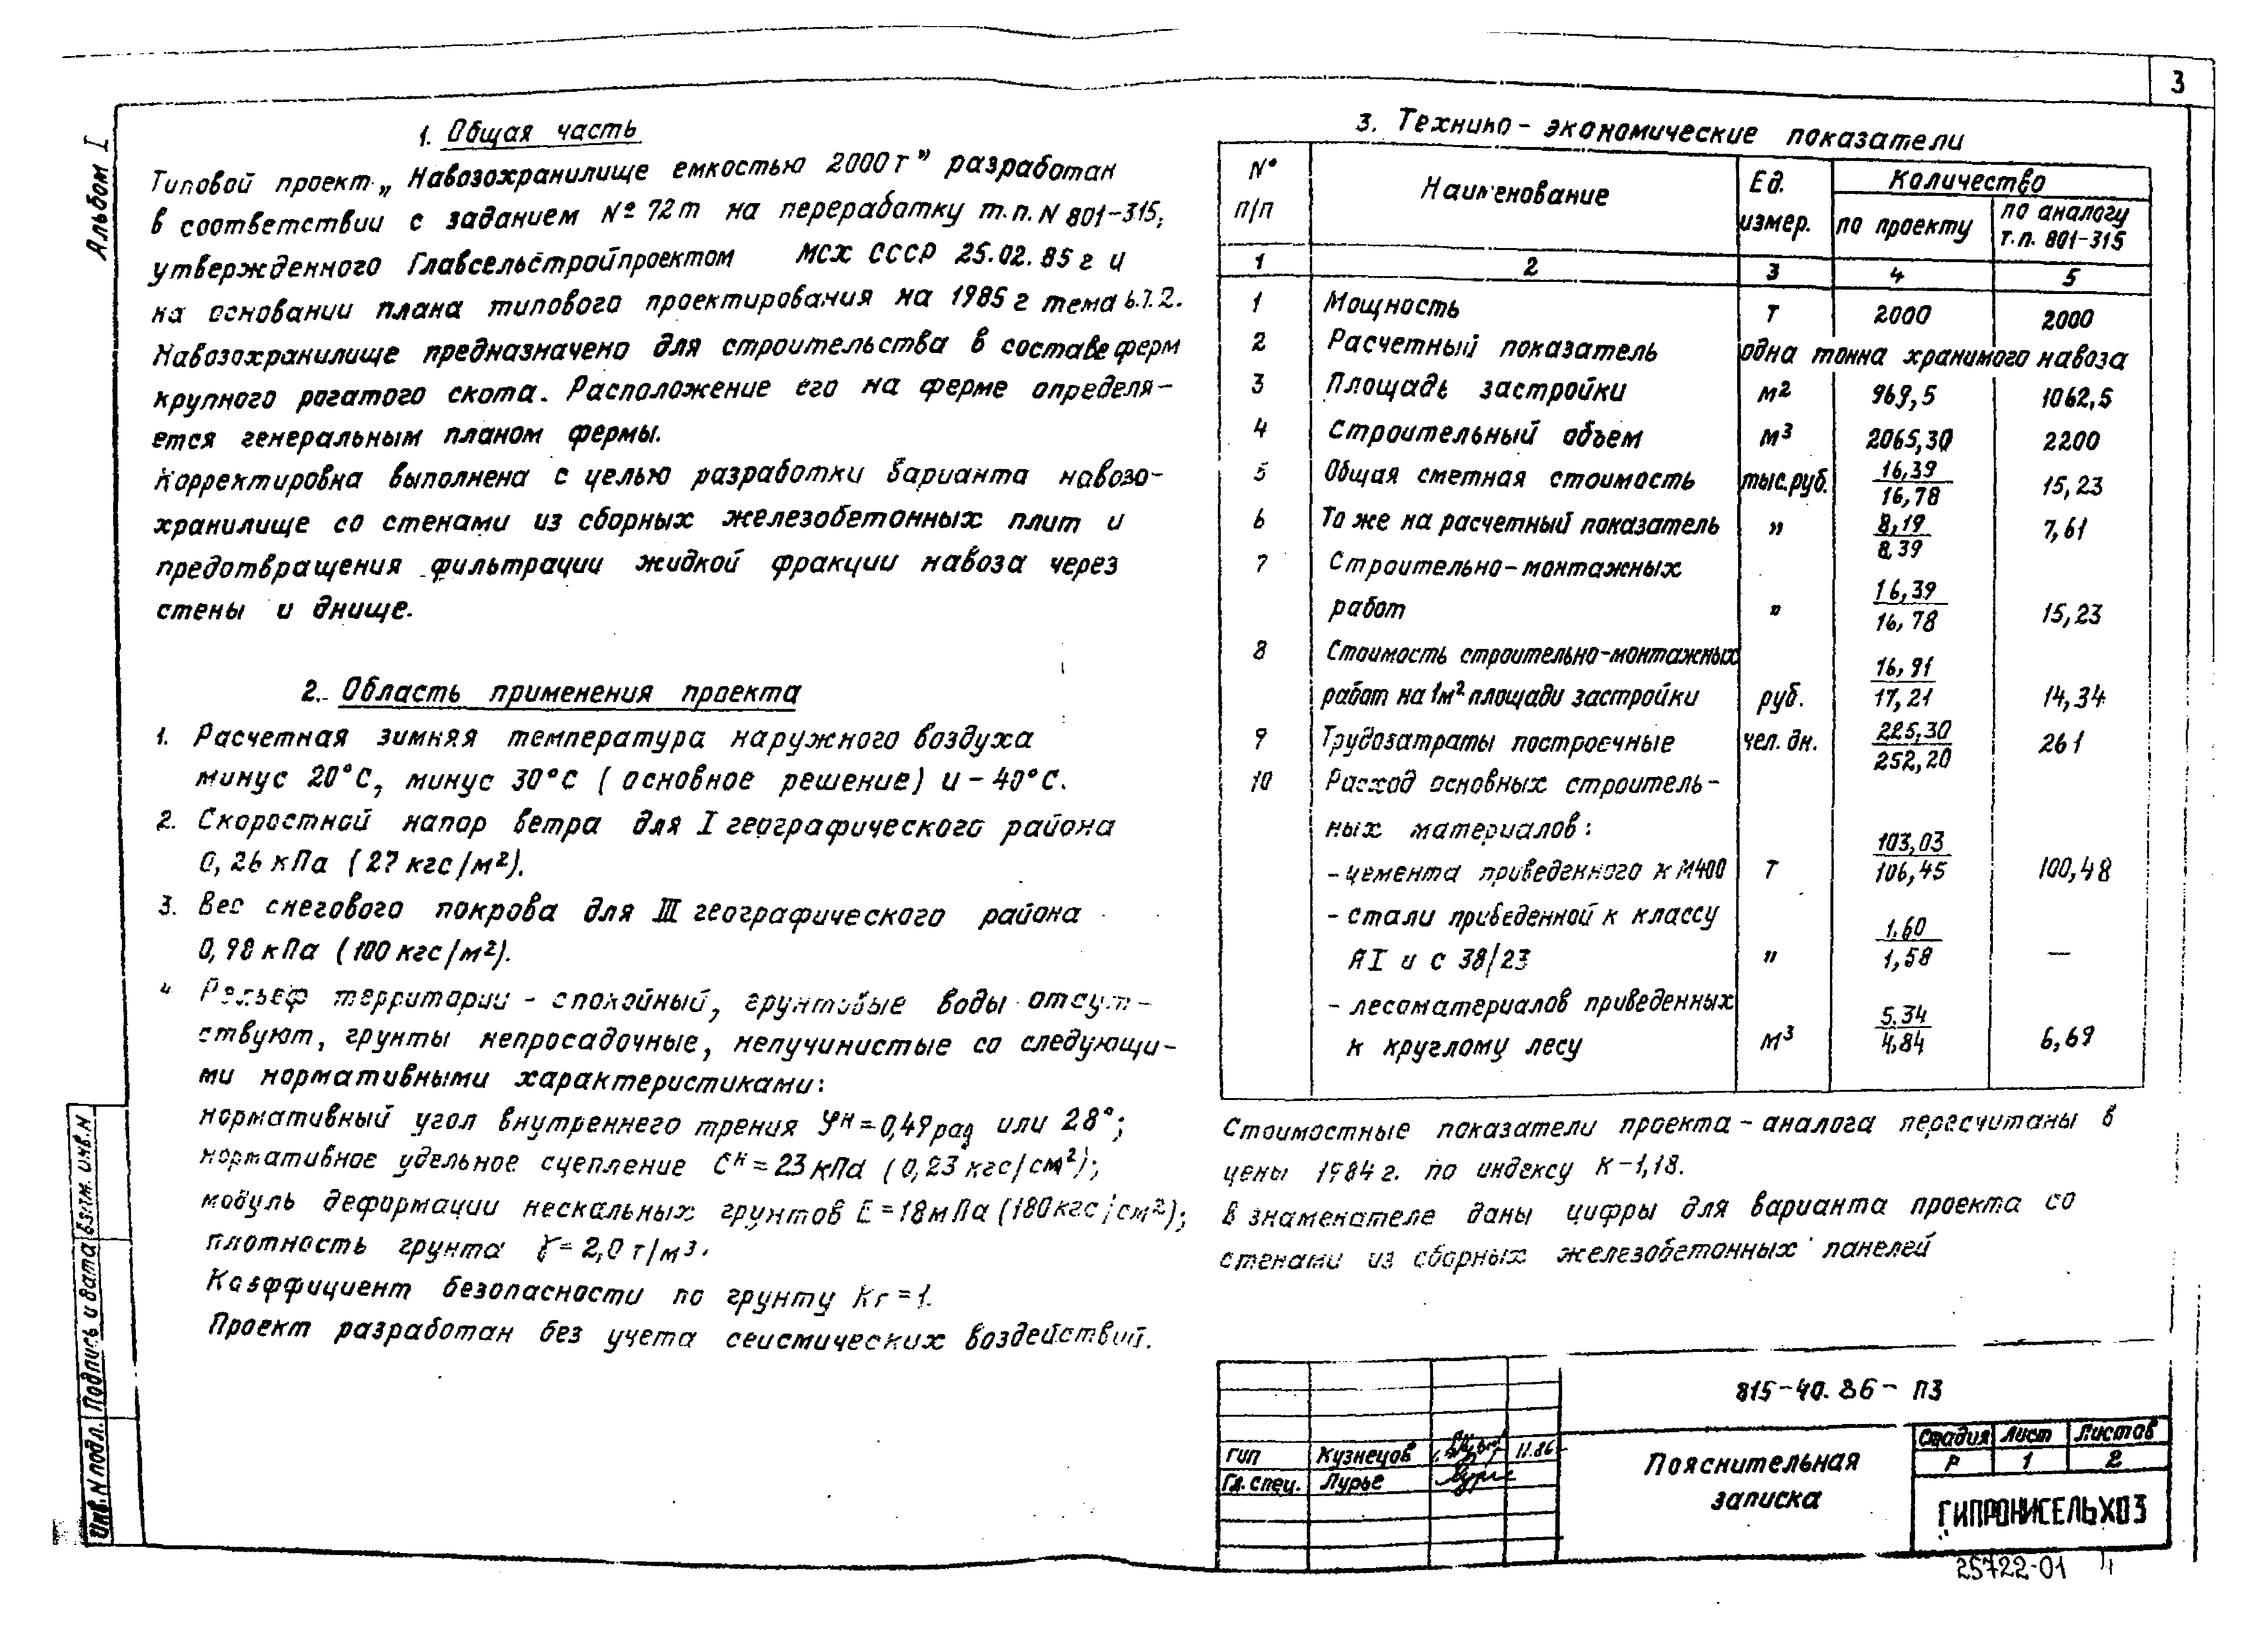 3
Альбом I
1. Общая часть
Типовой проект „Навозохранилище емкостью 2000 т" разработан
в соответствии с заданием № 72т на переработку т.п. N 801-315,
утвержденного Главсельстройпроектом МСХ СССР 25.02.85 г и
на основании плана типового проектирования на 1985 г тема 6.7.2.
Навозохранилище предназначено для строительства в составе ферм
крупного рогатого скота. Расположение его на ферме определя-
ется генеральным планом фермы.
Корректировка выполнена с целью разработки варианта навозо-
хранилище со стенами из сборных железобетонных плит и
предотвращения фильтрации жидкой фракции навоза через
стены и днище.
2. Область применения проекта
1. Расчетная зимняя температура наружного воздуха
минус 20°С, минус 30°С (основное решение) и -40°С.
2. Скоростной напор ветра для I географического района
0,26 кПа (27 кгс/м²).
3. Вес снегового покрова для III географического района
0,98 кПа (100 кгс/м²).
4 Рельеф территории - спокойный, грунтовые воды отсут-
ствуют, грунты непросадочные, непучинистые со следующи-
ми нормативными характеристиками:
нормативный угол внутреннего трения φн = 0,49 рад или 28°;
нормативное удельное сцепление Сн = 23 кПа (0,23 кгс/см²);
модуль деформации нескальных грунтов Е = 18 мПа (180 кгс/см²);
плотность грунта γ = 2,0 т/м³.
Коэффициент безопасности по грунту Кг = 1.
Проект разработан без учета сеисмических воздействий.
3. Технико - экономические показатели
N° п/п | Наименование | Ед. измер. | Количество
по проекту | по аналогу т.п. 801-315
1 | 2 | 3 | 4 | 5
1 | Мощность | Т | 2000 | 2000
2 | Расчетный показатель | одна тонна хранимого навоза
3 | Площадь застройки | м² | 969,5 | 1062,5
4 | Строительный объем | м³ | 2065,30 | 2200
5 | Общая сметная стоимость | тыс.руб. | 16,39 / 16,78 | 15,23
6 | То же на расчетный показатель | " | 8,19 / 8,39 | 7,61
7 | Строительно-монтажных
работ | " | 16,39 / 16,78 | 15,23
8 | Стоимость строительно-монтажных
работ на 1м² площади застройки | руб. | 16,91 / 17,21 | 14,34
9 | Трудозатраты построечные | чел. дн. | 225,30 / 252,20 | 261
10 | Расход основных строитель-
ных материалов:
- цемента приведенного к М400 | Т | 103,03 / 106,45 | 100,48
- стали приведенной к классу
АI и С 38/23 | " | 1,60 / 1,58 | —
- лесоматериалов приведенных
к круглому лесу | м³ | 5.34 / 4,84 | 6,69
Стоимостные показатели проекта - аналога пересчитаны в
цены 1984 г. по индексу К-1,18.
В знаменателе даны цифры для варианта проекта со
стенами из сборных железобетонных панелей
815-40.86- ПЗ
ГИП Кузнецов 11.86
Гл. спец. Лурье
Пояснительная
записка
Стадия Лист Листов
Р 1 2
ГИПРОНИСЕЛЬХОЗ
25722-01 4
Инв. N подл. Подпись и дата Взам. инв. N